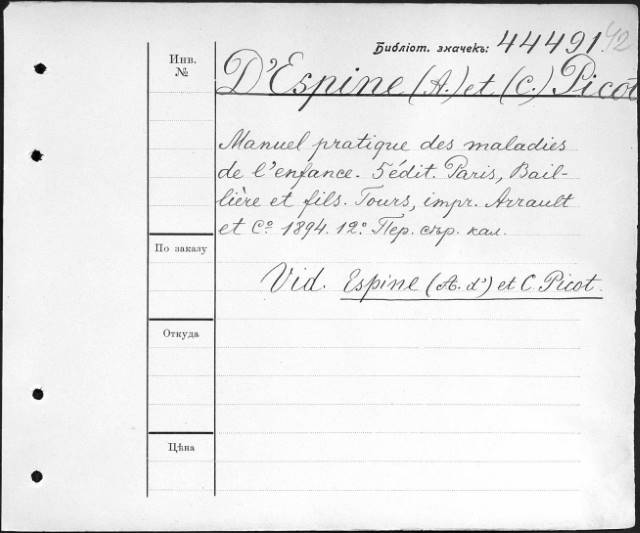 Библіот. значекъ: 44491 42
Инв.
№
D'Espine (A.) et (C.) Picot
Manuel pratique des maladies
de l'enfance. 5 édit. Paris, Bail-
lière et fils. Tours, impr. Arrault
et Cº 1894. 12º Пер. сър. кал.
По заказу
Vid. Espine (A. d') et C. Picot.
Откуда
Цѣна